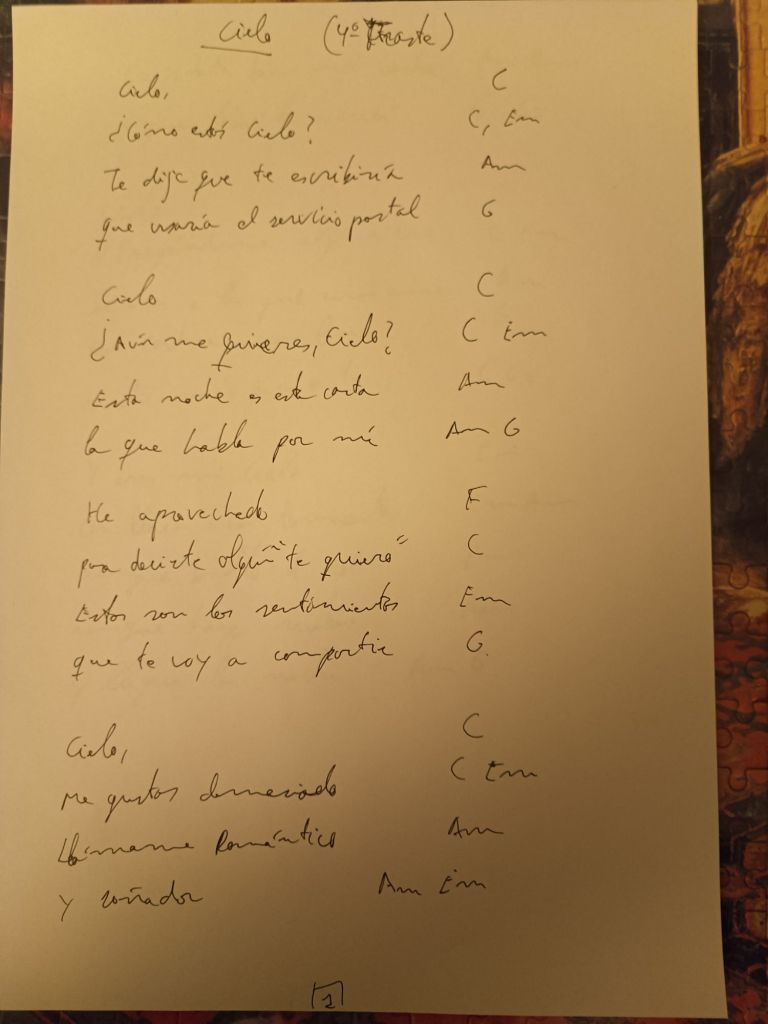 Cielo (4º Traste)
Cielo, C
¿Cómo estás Cielo? C, Em
Te dije que te escribiría Am
que usaría el servicio postal G
Cielo C
¿Aún me quieres, Cielo? C Em
Esta noche es esta carta Am
la que habla por mí Am G
He aprovechado F
para decirte algún "te quiero" C
Estos son los sentimientos Em
que te voy a compartir G.
Cielo, C
Me gustas demasiado C Em
Llámame Romántico Am
Y soñador Am Em
1